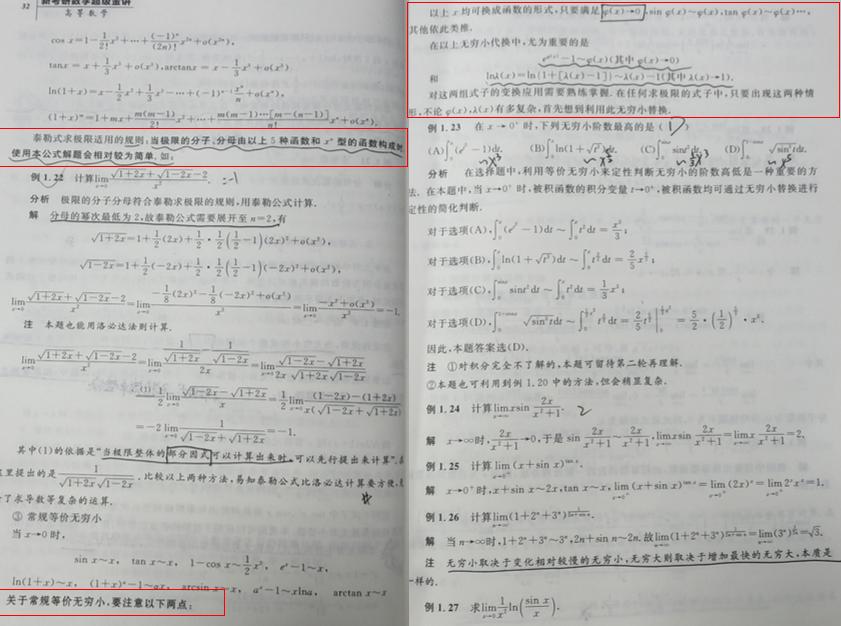 32 新考研数学超级金讲
高等数学
cos x=1-\frac{1}{2!}x²+…+\frac{(-1)^n}{(2n)!}x^{2n}+o(x^{2n}),
tanx = x+\frac{1}{3}x³+o(x³),arctanx = x-\frac{1}{3}x³+o(x³).
ln(1+x)=x-\frac{1}{2}x²+\frac{1}{3}x³-…+(-1)^{n-1}\frac{x^n}{n}+o(x^n),
(1+x)^m=1+mx+\frac{m(m-1)}{2!}x²+…+\frac{m(m-1)…[m-(n-1)]}{n!}x^n+o(x^n).
泰勒式求极限适用的规则:当极限的分子、分母由以上5种函数和x^n型的函数构成时,
使用本公式解题会相对较为简单.如:
例1.22 计算\lim_{x→0}\frac{\sqrt{1+2x}+\sqrt{1-2x}-2}{x²}. =-1
分析 极限的分子分母符合泰勒求极限的规则,用泰勒公式计算.
解 分母的幂次最低为2,故泰勒公式需要展开至n=2,有
\sqrt{1+2x}=1+\frac{1}{2}(2x)+\frac{1}{2}·\frac{1}{2}(\frac{1}{2}-1)(2x)²+o(x²),
\sqrt{1-2x}=1+\frac{1}{2}(-2x)+\frac{1}{2}·\frac{1}{2}(\frac{1}{2}-1)(-2x)²+o(x²),
\lim_{x→0}\frac{\sqrt{1+2x}+\sqrt{1-2x}-2}{x²}=\lim_{x→0}\frac{-\frac{1}{8}(2x)²-\frac{1}{8}(-2x)²+o(x²)}{x²}=\lim_{x→0}\frac{-x²+o(x²)}{x²}=-1.
注 本题也能用洛必达法则计算.
\lim_{x→0}\frac{\sqrt{1+2x}+\sqrt{1-2x}-2}{x²}=\lim_{x→0}\frac{\frac{1}{\sqrt{1+2x}}-\frac{1}{\sqrt{1-2x}}}{2x}=\lim_{x→0}\frac{\sqrt{1-2x}-\sqrt{1+2x}}{2x\sqrt{1+2x}\sqrt{1-2x}}
\overset{(1)}{=}\frac{1}{2}\lim_{x→0}\frac{\sqrt{1-2x}-\sqrt{1+2x}}{x}=\frac{1}{2}\lim_{x→0}\frac{(1-2x)-(1+2x)}{x(\sqrt{1-2x}+\sqrt{1+2x})}
=-2\lim_{x→0}\frac{1}{\sqrt{1-2x}+\sqrt{1+2x}}=-1.
其中(1)的依据是“当极限整体的部分因式可以计算出来时,可以先行提出来计算”,
里提出的是\frac{1}{\sqrt{1+2x}\sqrt{1-2x}}.比较以上两种方法,易知泰勒公式比洛必达计算要方便,
了求导数等复杂的运算.
③ 常规等价无穷小
当x→0时,
sin x~x, tan x~x, 1-cos x~\frac{1}{2}x², e^x-1~x,
ln(1+x)~x, (1+x)^α-1~αx, arcsin x~x, a^x-1~xlna, arctan x~x
关于常规等价无穷小,要注意以下两点:
以上x均可换成函数的形式,只要满足φ(x)→0,sin φ(x)~φ(x),tan φ(x)~φ(x)…,
其他依此类推.
在以上无穷小代换中,尤为重要的是
e^{φ(x)}-1~φ(x)(其中φ(x)→0)
和 lnλ(x)=ln{1+[λ(x)-1]}~λ(x)-1(其中λ(x)→1).
对这两组式子的变换应用需要熟练掌握.在任何求极限的式子中,只要出现这两种情
形,不论φ(x),λ(x)有多复杂,首先想到利用此无穷小替换.
例1.23 在x→0⁺时,下列无穷小阶数最高的是( D )
分析 在选择题中,利用等价无穷小来定性判断无穷小的阶数高低是一种重要的方
法.在本题中,当x→0⁺时,被积函数的积分变量t→0⁺,被积函数均可通过无穷小替换进行
定性的简化判断.
因此,本题答案选(D).
注 ①对积分完全不了解的,本题可留待第二轮再理解.
②本题也可利用到例1.20中的方法,但会稍显复杂.
例1.24 计算\lim_{x→∞}xsin\frac{2x}{x²+1}. 2
解 x→∞时,\frac{2x}{x²+1}→0,于是sin\frac{2x}{x²+1}~\frac{2x}{x²+1},\lim_{x→∞}xsin\frac{2x}{x²+1}=\lim_{x→∞}x\frac{2x}{x²+1}=2.
例1.25 计算\lim_{x→0⁺}(x+sin x)^{tan x}.
解 x→0⁺时,x+sin x~2x,tan x~x,\lim_{x→0⁺}(x+sin x)^{tan x}=\lim_{x→0⁺}(2x)^x=\lim_{x→0⁺}2^x x^x=1.
例1.26 计算\lim_{n→∞}(1+2^n+3^n)^{\frac{1}{2n+sin n}}.
解 当n→∞时,1+2^n+3^n~3^n,2n+sin n~2n.故\lim_{n→∞}(1+2^n+3^n)^{\frac{1}{2n+sin n}}=\lim_{n→∞}(3^n)^{\frac{1}{2n}}=\sqrt{3}.
注 无穷小取决于变化相对较慢的无穷小,无穷大则取决于增加最快的无穷大,本质是
一样的.
例1.27 求\lim_{x→0}\frac{1}{x²}ln(\frac{sin x}{x}).